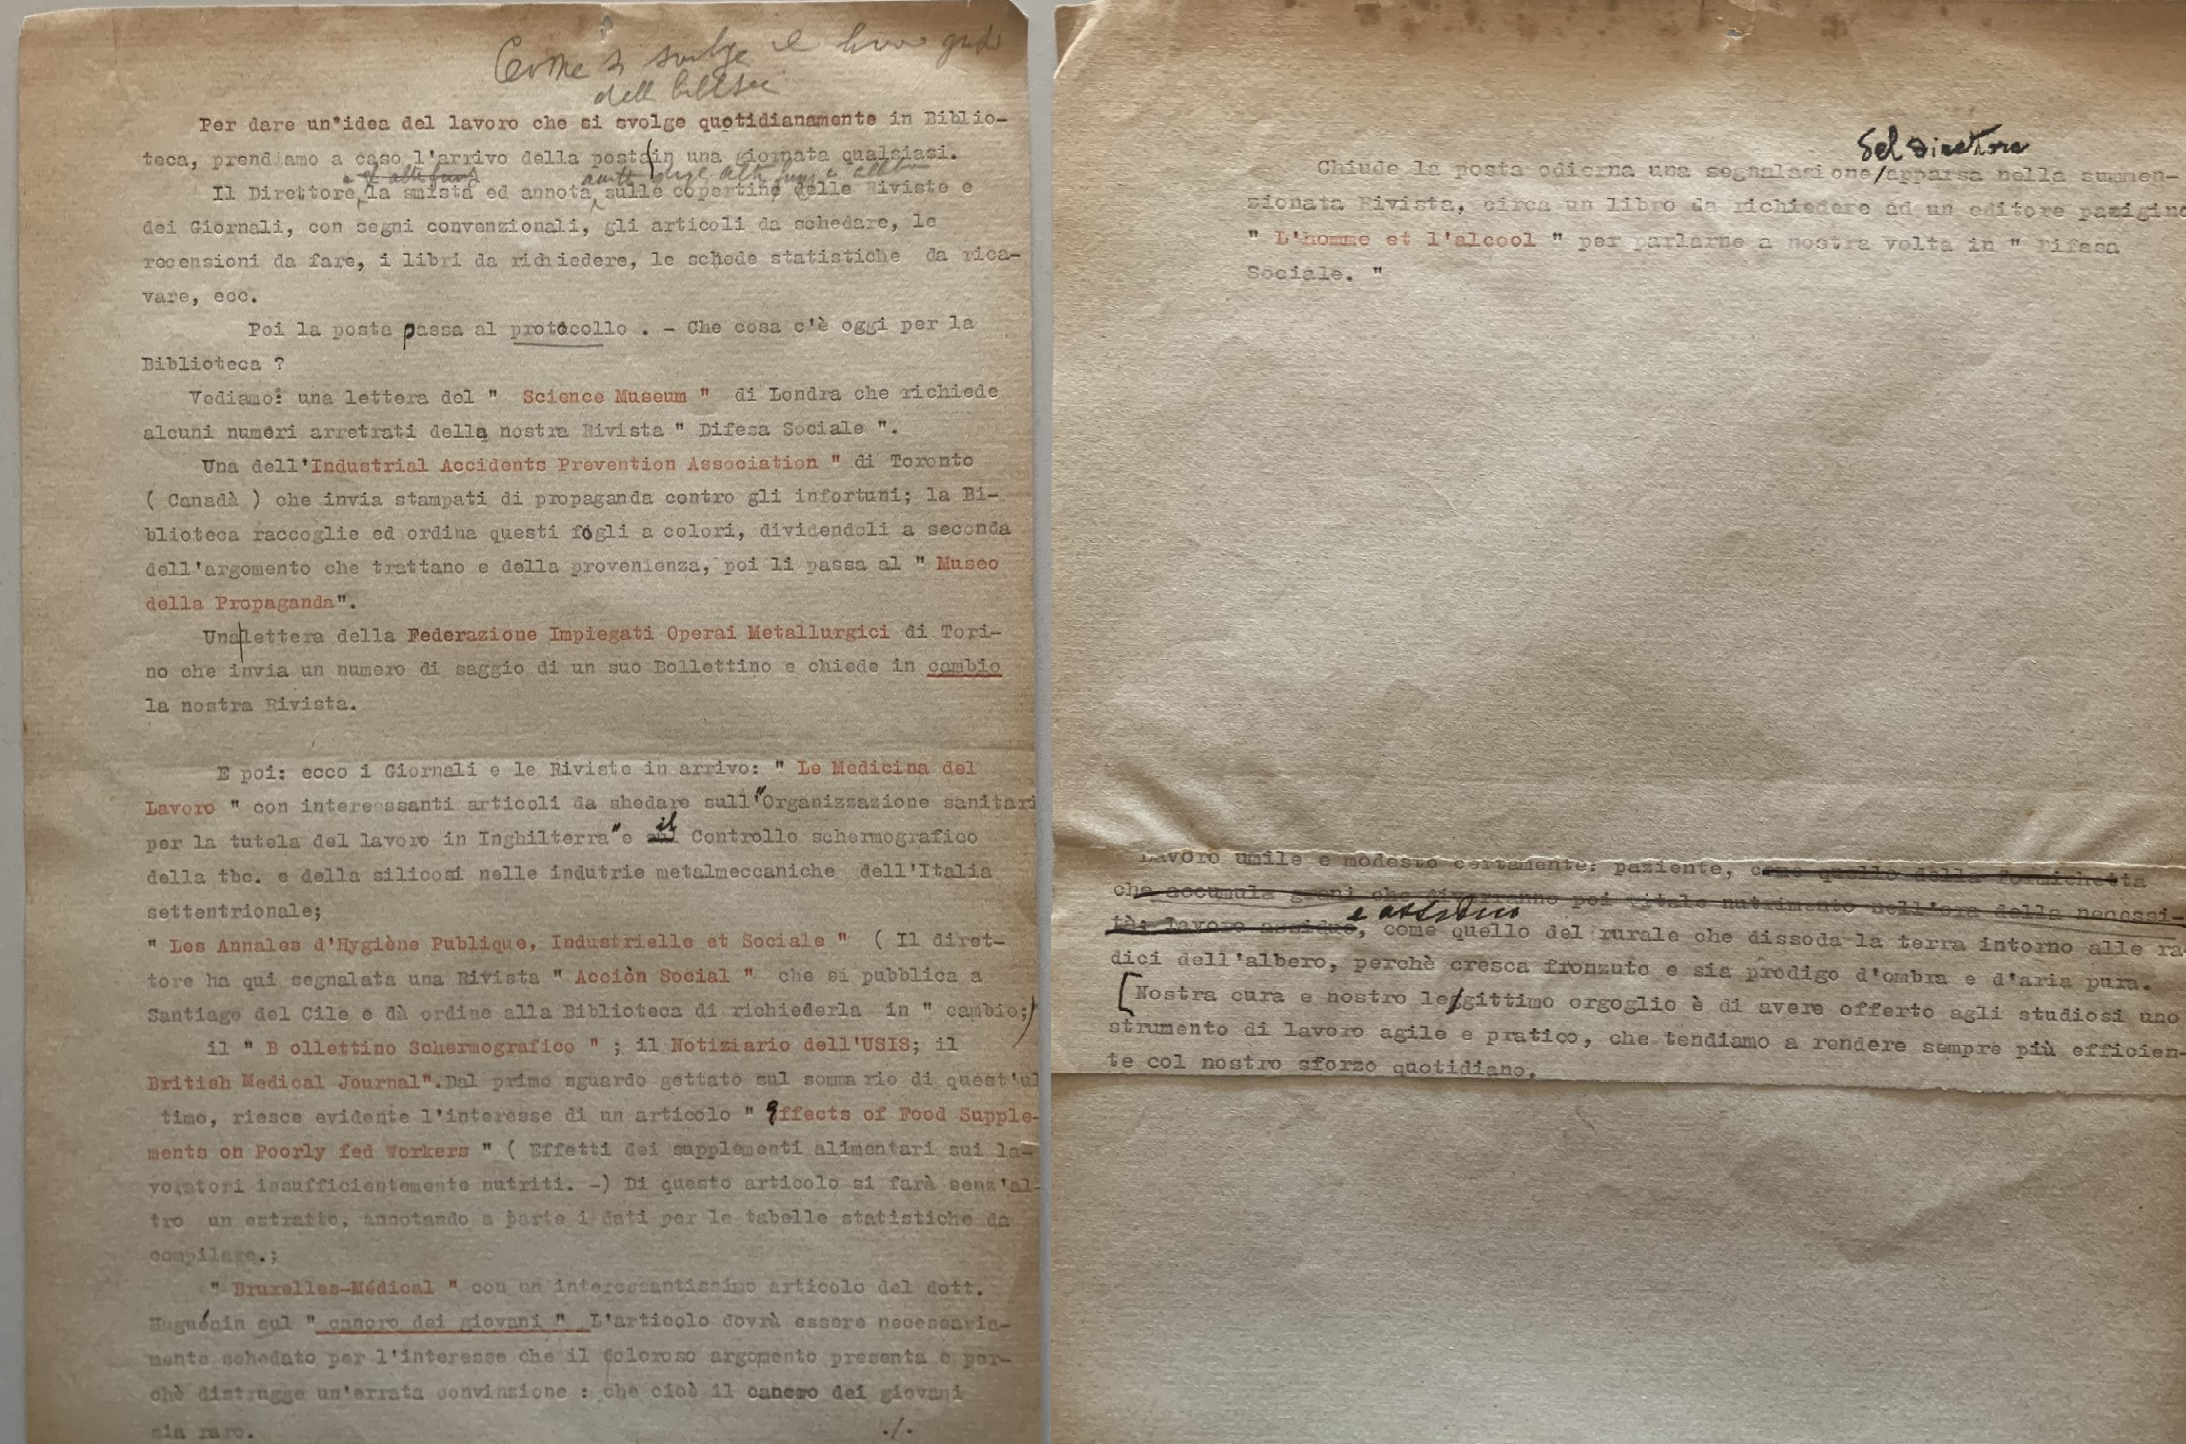 Come si svolge il lavoro
Per dare un'idea del lavoro che si svolge quotidianamente in Biblio-
teca, prendiamo a caso l'arrivo della posta in una giornata qualsiasi.
Il Direttore la smista ed annota sulle copertine delle Riviste e
dei Giornali, con segni convenzionali, gli articoli da schedare, le
recensioni da fare, i libri da richiedere, le schede statistiche da rica-
vare, ecc.
Poi la posta passa al protocollo . - Che cosa c'è oggi per la
Biblioteca ?
Vediamo: una lettera del " Science Museum " di Londra che richiede
alcuni numeri arretrati della nostra Rivista " Difesa Sociale ".
Una dell'Industrial Accidents Prevention Association " di Toronto
( Canadà ) che invia stampati di propaganda contro gli infortuni; la Bi-
blioteca raccoglie ed ordina questi fogli a colori, dividendoli a seconda
dell'argomento che trattano e della provenienza, poi li passa al " Museo
della Propaganda".
Una lettera della Federazione Impiegati Operai Metallurgici di Tori-
no che invia un numero di saggio di un suo Bollettino e chiede in cambio
la nostra Rivista.
E poi: ecco i Giornali e le Riviste in arrivo: " Le Medicina del
Lavoro " con interessanti articoli da shedare sull'"Organizzazione sanitari
per la tutela del lavoro in Inghilterra" e il Controllo schermografico
della tbc. e della silicosi nelle indutrie metalmeccaniche dell'Italia
settentrionale;
" Les Annales d'Hygiène Publique, Industrielle et Sociale " ( Il diret-
tore ha qui segnalata una Rivista " Acciòn Social " che si pubblica a
Santiago del Cile e dà ordine alla Biblioteca di richiederla in " cambio;)
il " B ollettino Schermografico " ; il Notiziario dell'USIS; il
British Medical Journal".Dal primo sguardo gettato sul somma rio di quest'ul
timo, riesce evidente l'interesse di un articolo " Effects of Food Supple-
ments on Poorly fed Workers " ( Effetti dei supplementi alimentari sui la-
voratori insufficientemente nutriti. -) Di questo articolo si farà senz'al-
tro un estratto, annotando a parte i dati per le tabelle statistiche da
compilare.;
" Bruxelles-Médical " con un interessantissimo articolo del dott.
Huguénin sul " cancro dei giovani " L'articolo dovrà essere necessaria-
mente schedato per l'interesse che il doloroso argomento presenta e per-
chè distrugge un'errata convinzione : che cioè il cancro dei giovani
sia raro.
./.
del Direttore
Chiude la posta odierna una segnalazione/apparsa nella summen-
zionata Rivista, circa un libro da richiedere ad un editore parigino
" L'homme et l'alcool " per parlarne a nostra volta in " Difesa
Sociale. "
Lavoro umile e modesto certamente: paziente, come quello della formichetta
che accumula grani che diverranno poi vitale nutrimento nell'ora della necessi-
tà: lavoro assiduo, e assiduo come quello del rurale che dissoda la terra intorno alle ra-
dici dell'albero, perchè cresca fronzuto e sia prodigo d'ombra e d'aria pura.
[Nostra cura e nostro leggittimo orgoglio è di avere offerto agli studiosi uno
strumento di lavoro agile e pratico, che tendiamo a rendere sempre più efficien-
te col nostro sforzo quotidiano.